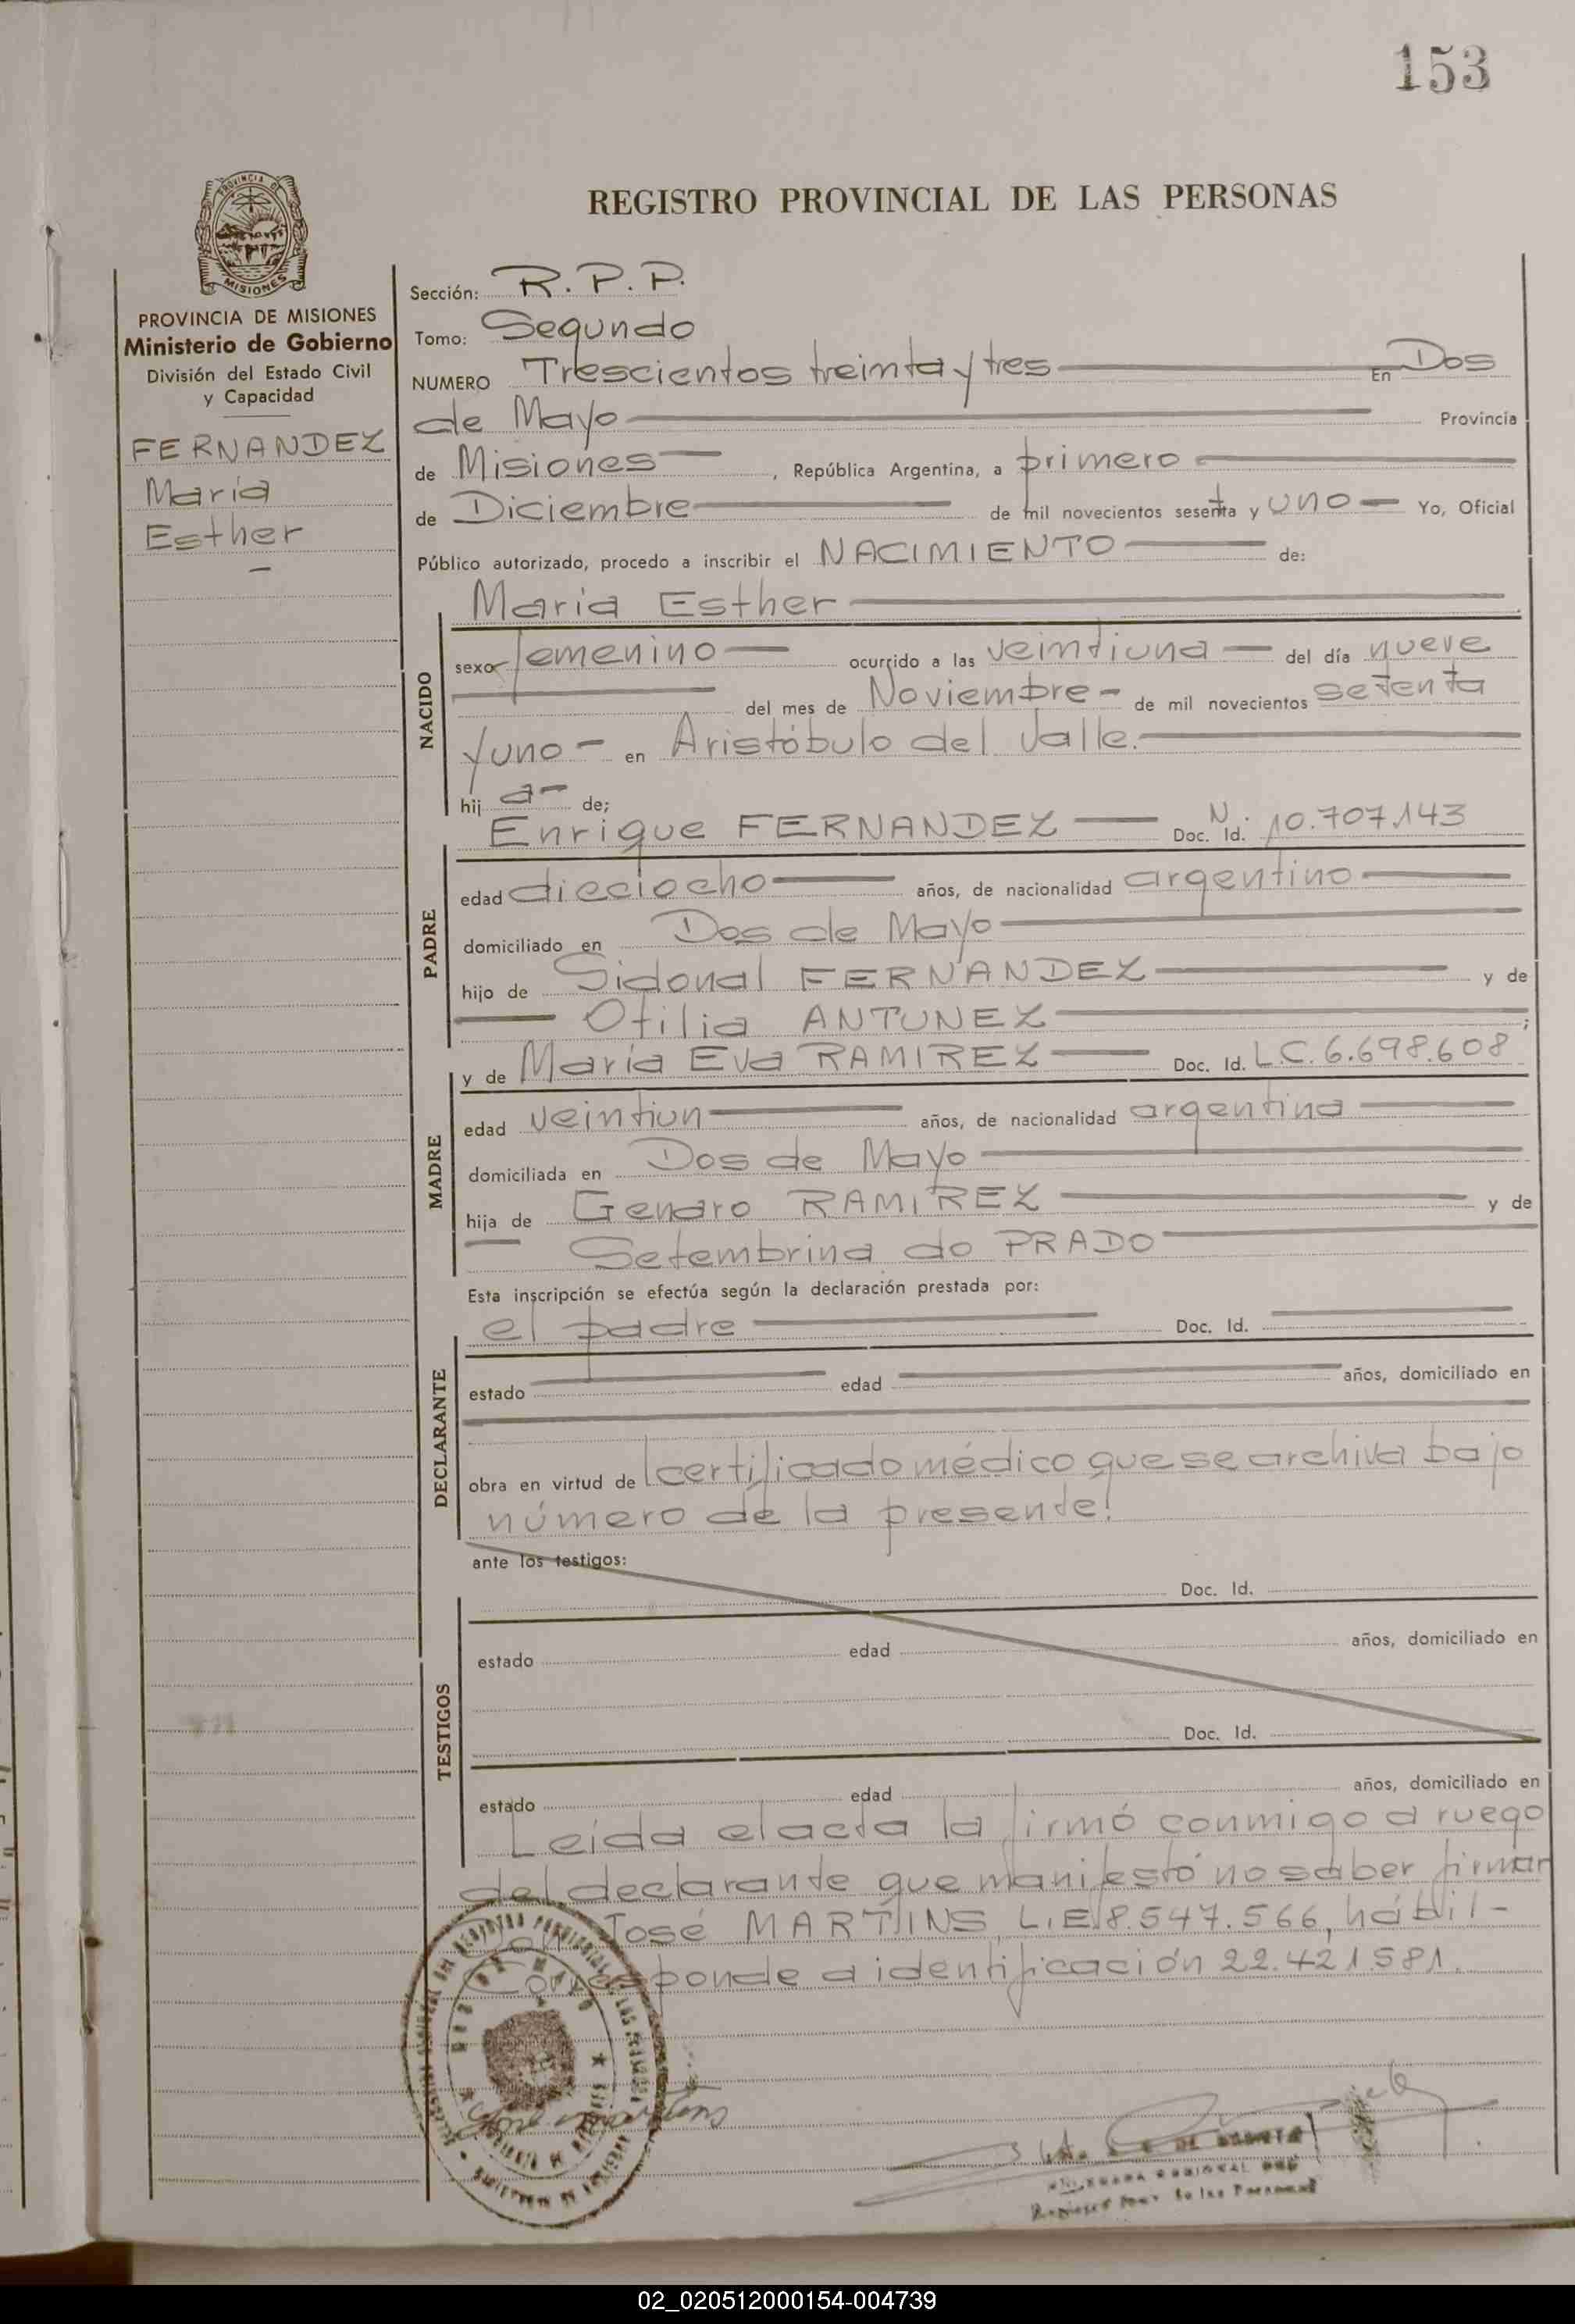 153
PROVINCIA DE
MISIONES
REGISTRO PROVINCIAL DE LAS PERSONAS
PROVINCIA DE MISIONES
Ministerio de Gobierno
División del Estado Civil
y Capacidad
FERNANDEZ
María
Esther
Sección: R.P.P.
Tomo: Segundo
NUMERO Trescientos treinta y tres En Dos
de Mayo Provincia
de Misiones, República Argentina, a primero
de Diciembre de mil novecientos sesenta y uno Yo, Oficial
Público autorizado, procedo a inscribir el NACIMIENTO de:
María Esther
NACIDO
sexo femenino ocurrido a las veintiuna del día nueve
del mes de Noviembre de mil novecientos setenta
y uno en Aristóbulo del Valle.
hij a de;
Enrique FERNANDEZ Doc. Id. N. 10.707.143
PADRE
edad dieciocho años, de nacionalidad argentino
domiciliado en Dos de Mayo
hijo de Sidonal FERNANDEZ y de
Otilia ANTUNEZ ;
y de María Eva RAMIREZ Doc. Id. L.C. 6.698.608
MADRE
edad veintiun años, de nacionalidad argentina
domiciliada en Dos de Mayo
hija de Genaro RAMIREZ y de
Setembrina do PRADO
Esta inscripción se efectúa según la declaración prestada por:
el padre Doc. Id.
DECLARANTE
estado edad años, domiciliado en
obra en virtud de certificado médico que se archiva bajo
número de la presente!
ante los testigos:
Doc. Id.
TESTIGOS
estado edad años, domiciliado en
Doc. Id.
estado edad años, domiciliado en
Leída el acta la firmó conmigo a ruego
del declarante que manifestó no saber firmar
José MARTINS L.E. 8.547.566, hábil-
Corresponde a identificación 22.421.581.
02_020512000154-004739